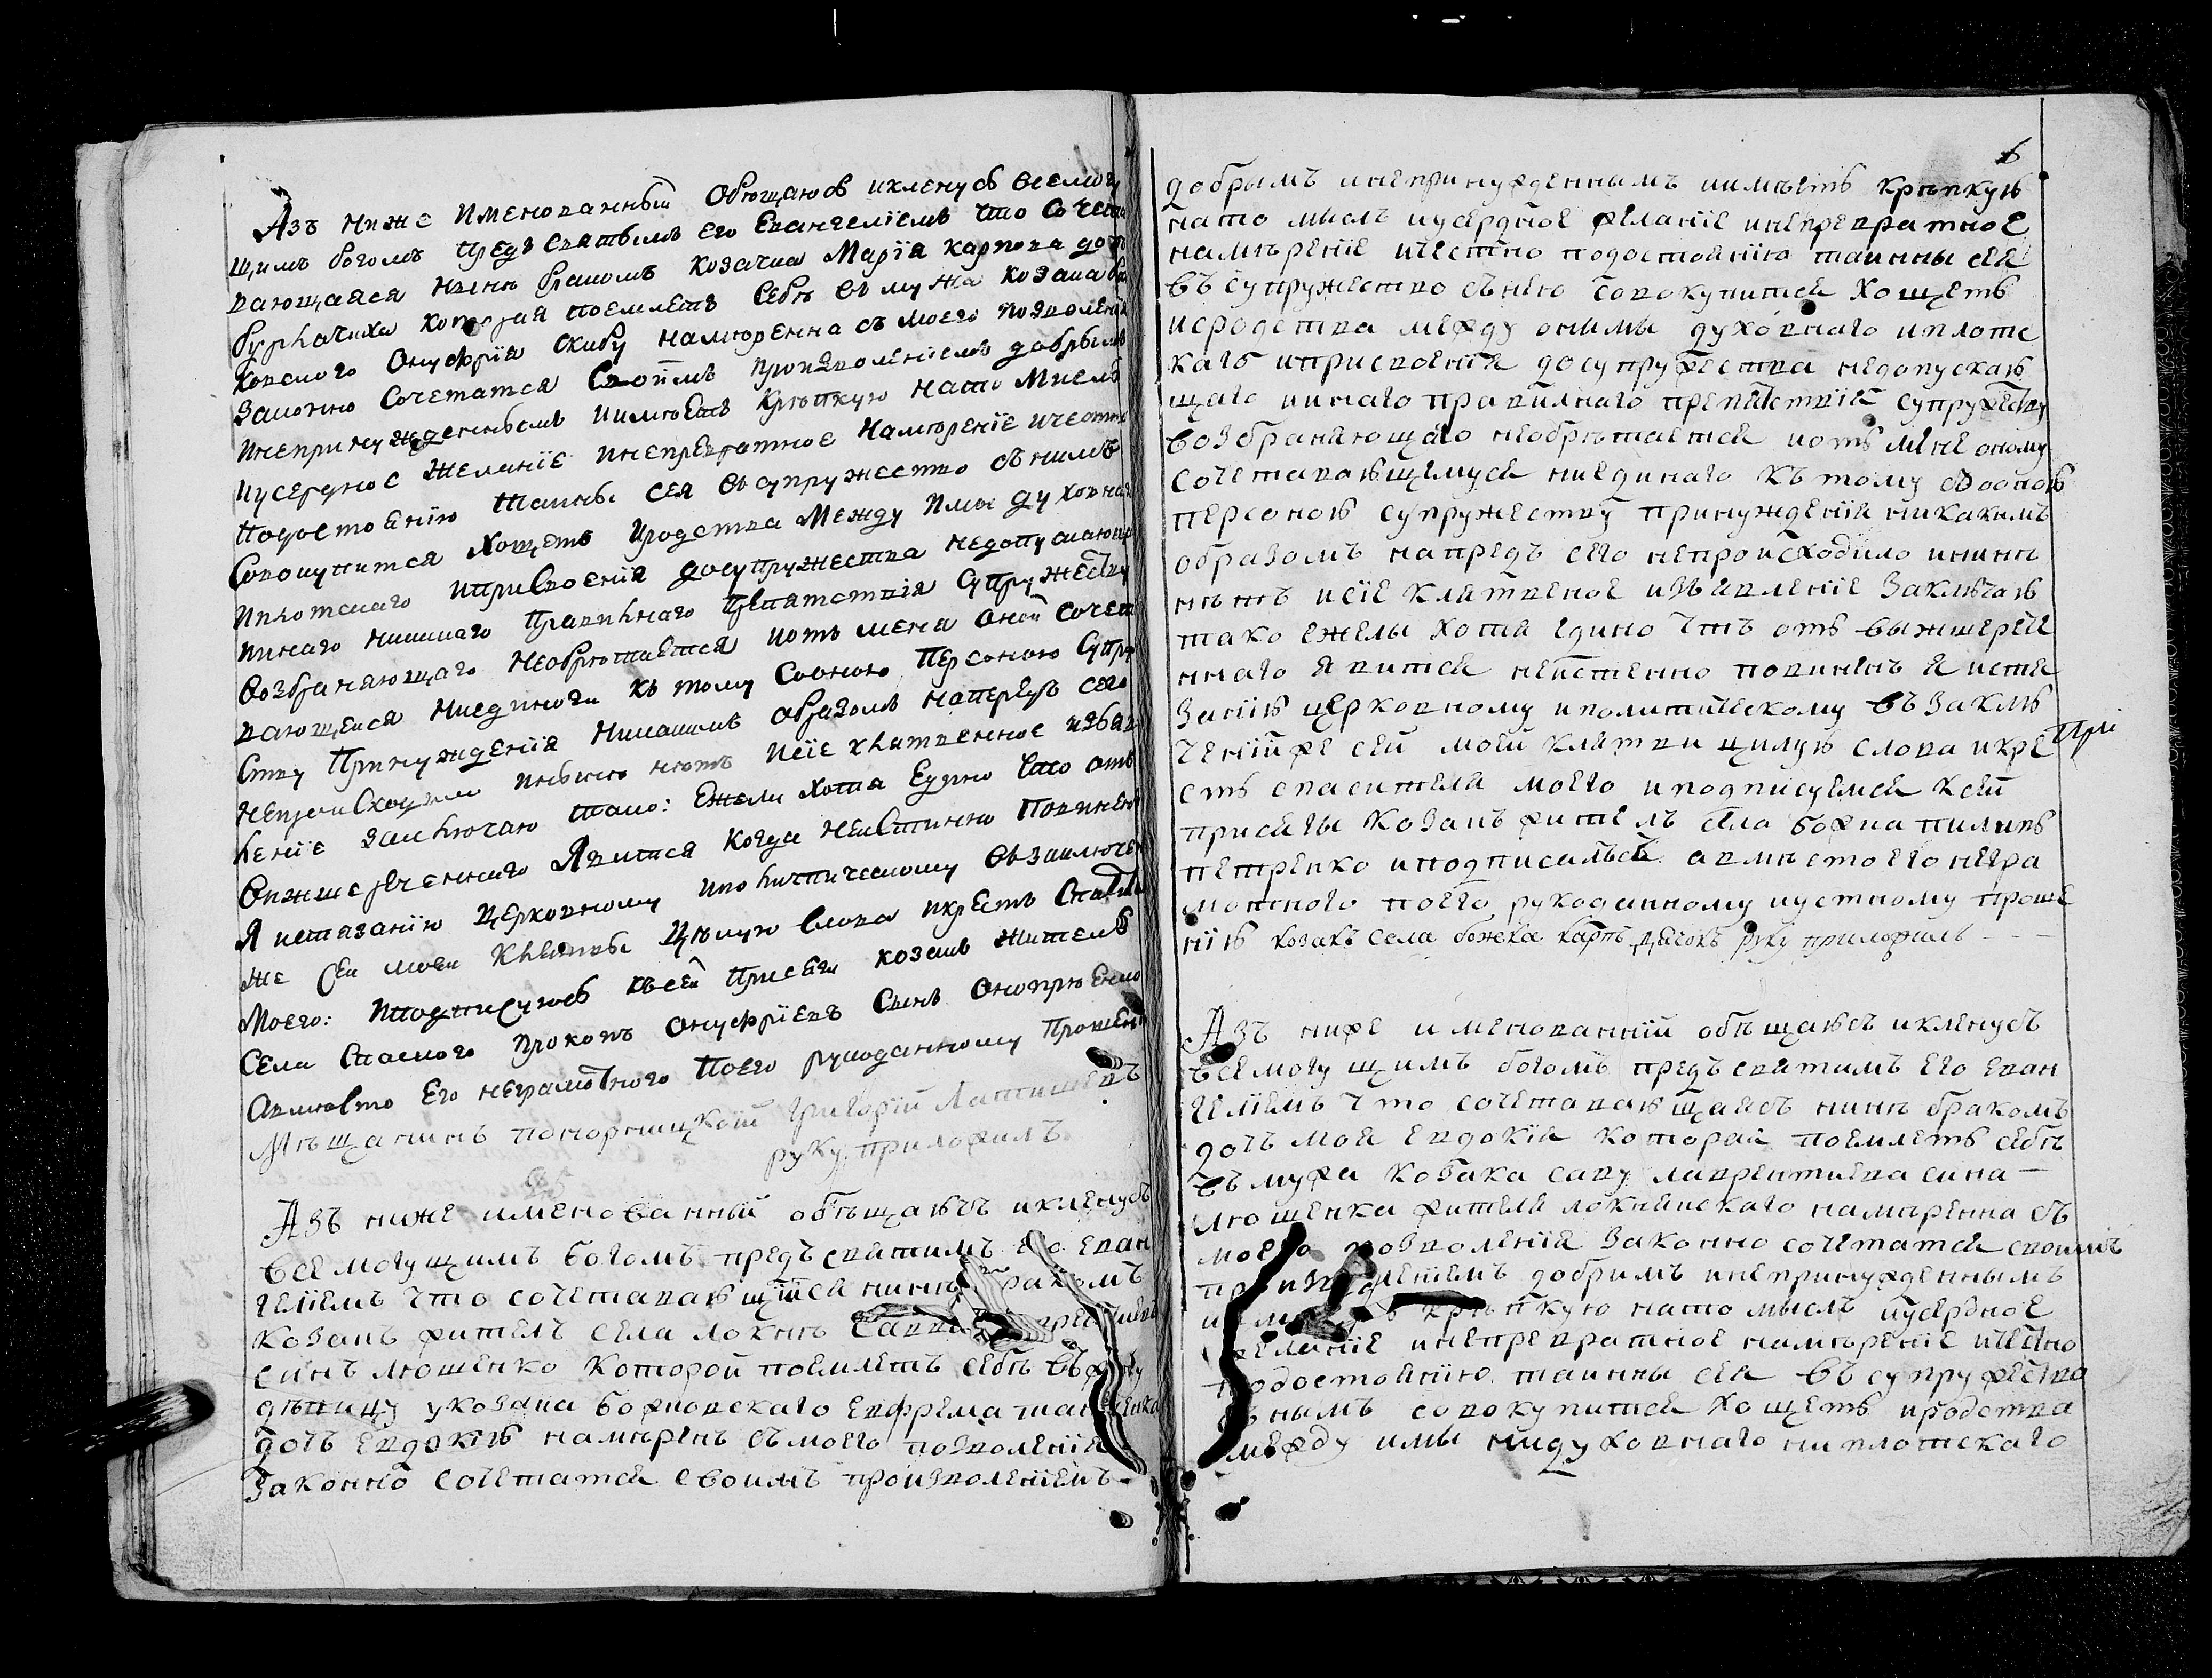 Азъ ниже Именованный Обѣщаюсь иклянусь всемогу
щимъ богомъ предъ Святымъ его Евангелїемъ что Сочета
вающаяся нынѣ бракомъ козачка Марїя карпова дочь
которая поемлетъ Себѣ въ мужа козака
Онуфрїя Скибу намѣренна съ моего позволенїя
Законно Сочетатся Своимъ произволенїемъ добрымъ
инепринужденнымъ иимѣетъ Крѣпкую нато Мысль
иусердное желанїе инепревратное намѣренїе ичестно
подостоянїю Тайны сея въ супружество сънимъ
Совокупится Хощетъ Иродства Между Имы духовнаго
Иплотскаго иприсвоенїя досупружества недопускающа
иинаго никакаго Правилнаго Препятствїя Супружеству
возбраняющаго необрѣтается иотъ мена оной сочета
вающейся ниединаго къ тому Сооною Персоною Супру
Ству Принужденїя Никакимъ образомъ напередъ сего
непроисходило инынѣ нѣтъ Исїе клятвенное изъяв
ленїе заключаю тако: Ежели хотя Едино что отъ
вижшереченнаго Явится когда неистинно Повиненъ
Я истязанїю Церковному иполитическому въ заключе
же сей моей Клятвы Цѣлую Слова икрестъ Спасителя
Моего: Подписуюсь къ сей Присяги козакъ житель
Села Спаского Прокопъ онуфрїевъ Сынъ
Авмѣсто Его неграмотного Поего рукоданному Прошенїю
Мѣщанинъ Григорїй
руку приложилъ
Азъ ниже именованный обѣщаюсъ иклянусъ
всемогущимъ богомъ предъ святимъ его Еван
гелїемъ что сочетаваюшїйся нинѣ бракомъ
козакъ жителъ села локнѣ Савва
синъ люшенко Которой поемлетъ себѣ въ жену
дѣвицу укозака божковскаго Евфрема
дочъ Евдокїю намѣренъ съмоего позволенїя
Законно сочетатся своимъ произволенїемъ
добрымъ инепринужденнымъ иимѣетъ крѣпкую
нато мыслъ иусердное желанїе инепревратное
намѣренїе ичестно подостоянїю таинны сея
въсупружество сънею совокупится хощетъ
иродства между онимы духовнаго иплотс
каго иприсвоенїя досупружества недопускаю
щаго иинаго правилнаго препятствїя супружеству
возбраняющаго необрѣтается иотъ мене оному
сочетаваюшемуся ниединаго къ тому сооною
персоною супружеству принужденїя никакимъ
образомъ напредъ сего непроисходило ининѣ
нѣтъ исїе клятвеное изъявленїе заключаю
тако ежелы хотя едино что отъ выжшерече
ннаго явится неистенно повиненъ я истя
занїю церковному иполитическому въ заклю
ченїи же сей моей клятви цилую слова икре
При
стъ спасителя моего иподписуемся ксей
присяги козакъ жителъ села божка пилипъ
петренко иподписалъся авмѣсто его негра
мотного поего рукоданному иустному проше
нїю козакъ села божка карпъ дячокъ руку приложилъ
Азъ ниже именованнїй обѣщаюсъ иклянусъ
всемогущимъ богомъ предъ святимъ Его Еван
гелїемъ что сочетаваюшаясъ нинѣ бракомъ
дочъ моя Евдокїя которая поемлетъ себѣ
въ мужа козака саву лаврентиева сина
люшенка жителя локнянскаго намѣренна съ
моего позволенїя законно сочетатся своимъ
произволенїемъ добримъ инепринужденнымъ
иимѣетъ крѣпкую нато мыслъ иусердное
желанїе инепревратное намѣренїе ичестно
подостоянїю таинны сея въ супружество
сънымъ совокупится хощетъ иродства
между имы нидуховнаго ниплотскаго